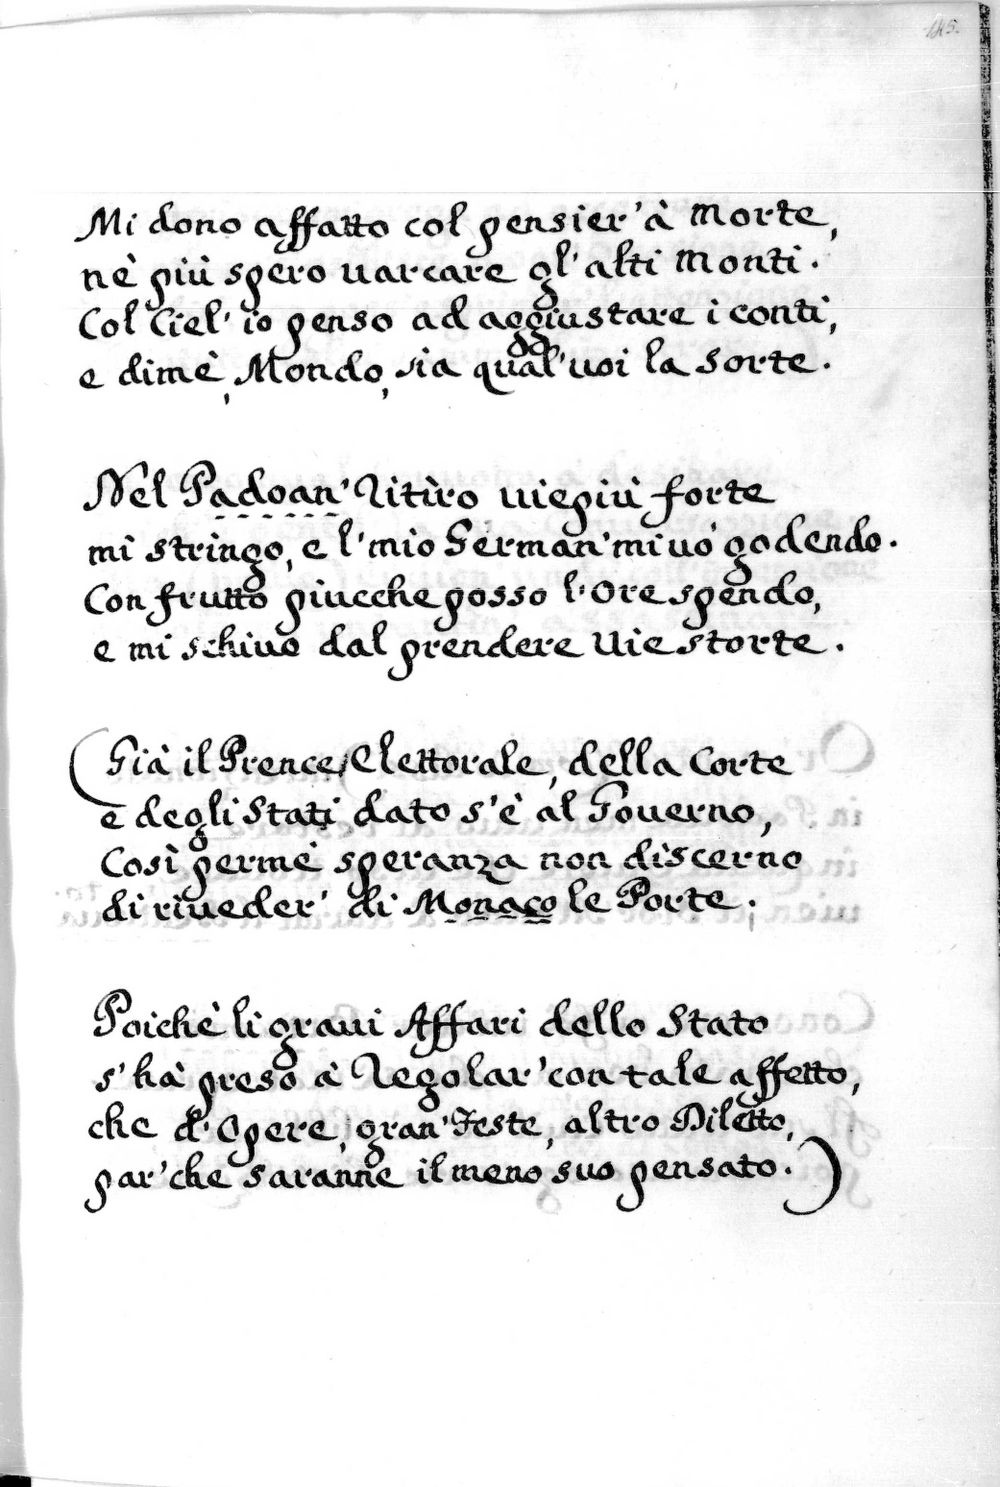 145.
Mi dono affatto col pensier' à Morte,
nè più spero uarcare gl' alti Monti.
Col Ciel' io penso ad aggiustare i conti,
e di mè, Mondo, sia qual' uoi la Sorte.
Nel Padoan' Ritìro uiepiù forte
mi stringo, e l' mio German' mi uò godendo.
Con frutto piucche posso l' Ore spendo,
e mi schiuo dal prendere Uie storte.
(Già il Prence Elettorale, della Corte
e degli Stati dato s' è al Gouerno,
Così per mè speranza non discerno
di riueder' di Monaco le Porte.
Poichè li graui Affari dello Stato
s' hà preso à Regolar' con tale affetto,
che d' Opere, gran' Feste, altro Diletto,
par' che saranne il meno suo pensato.)